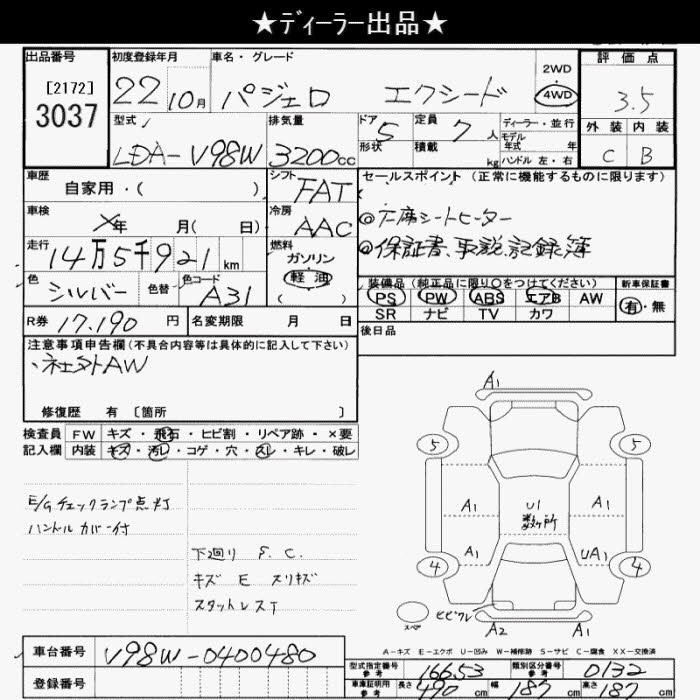 ★ディーラー出品★
出品番号
[2172]
3037
初度登録年月
22 10月
車名・グレード
パジェロ エクシード
2WD
4WD
評価点
3.5
外装 内装
C B
型式
LDA-V98W
排気量
3200cc
ドア
5
形状
定員
7人
積載
kg
ディーラー・並行
モデル
年式 年
ハンドル 左・右
車歴
自家用・( )
シフト
FAT
セールスポイント (正常に機能するものに限ります)
◎前席シートヒーター
◎保証書、取説、記録簿
車検
×年 月( 日)
冷房
AAC
走行
14万5千921km
燃料
ガソリン
軽油
( )
色
シルバー
色替
色コード
A31
装備品 (純正品に限り○をつけてください)
PS PW ABS エアB AW
SR ナビ TV カワ
新車保証書
有・無
R券 17.190円
名変期限 月 日
後日品
注意事項申告欄(不具合内容等は具体的に記入して下さい)
・社外AW
修復歴 有 〔箇所 〕
検査員 FW キズ・飛石・ヒビ割・リペア跡・×要
記入欄 内装 キズ・汚レ・コゲ・穴・スレ・キレ・破レ
E/Gチェックランプ点灯
ハンドルカバー付
下廻り S.C.
キズ E スリキズ
スタットレスT
A1
5 5
A1 U1 A1
数ヶ所
A1 UA1
4 4
スペア
ヒビワレ
A2 A1
A-キズ E-エクボ U-凹み W-補修跡 S-サビ C-腐食 XX-交換済
車台番号 V98W-0400480
登録番号
型式指定番号
参考
16653
類別区分番号
参考
0132
車庫証明用
参考
長さ 490cm 幅 187cm 高さ 187cm